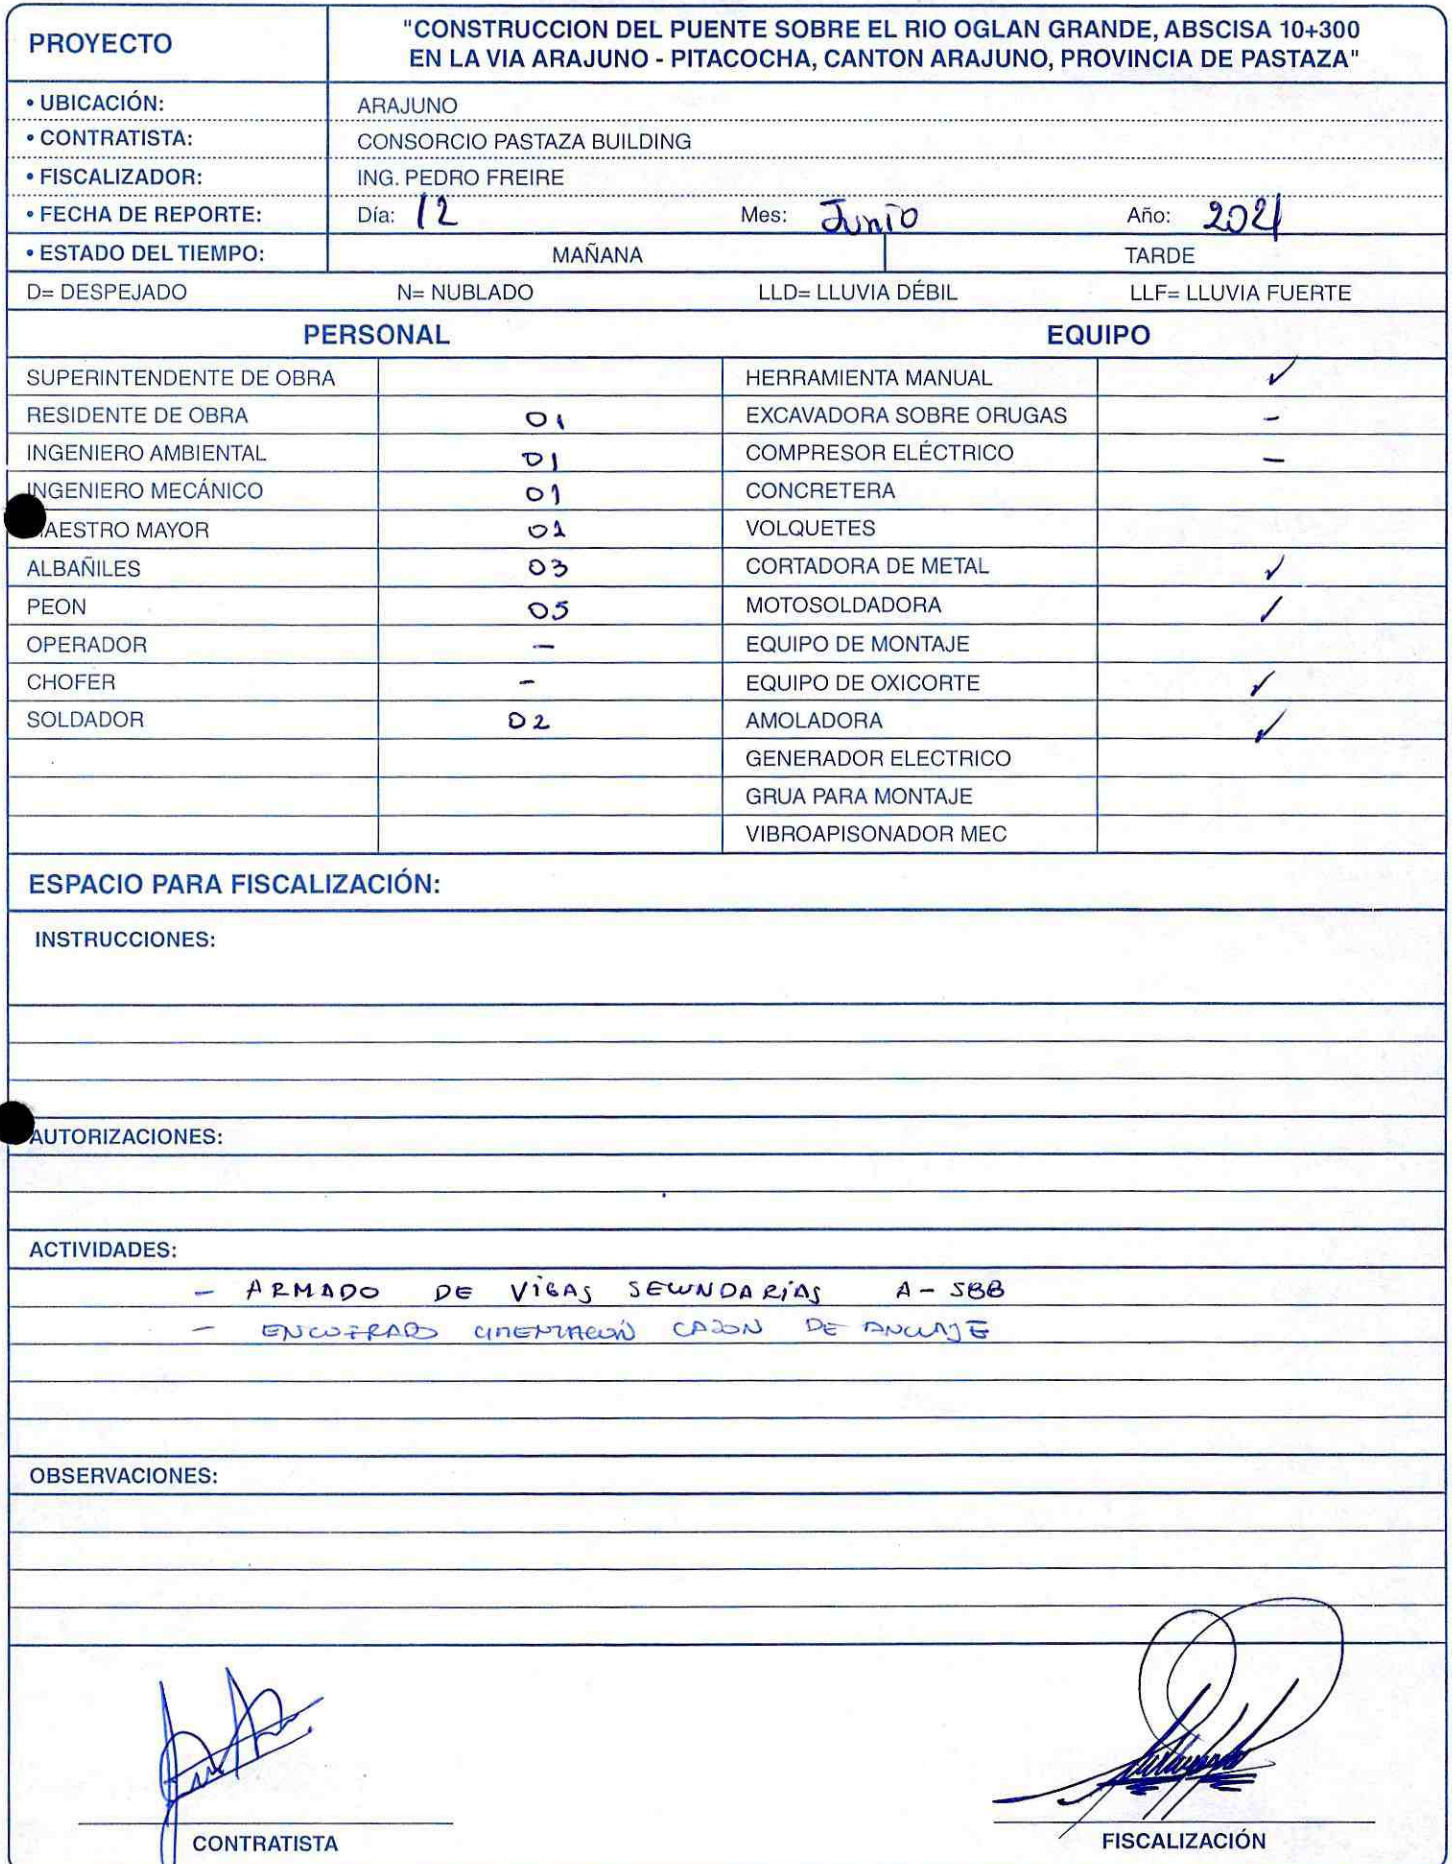 PROYECTO
"CONSTRUCCION DEL PUENTE SOBRE EL RIO OGLAN GRANDE, ABSCISA 10+300
EN LA VIA ARAJUNO - PITACOCHA, CANTON ARAJUNO, PROVINCIA DE PASTAZA"
• UBICACIÓN: ARAJUNO
• CONTRATISTA: CONSORCIO PASTAZA BUILDING
• FISCALIZADOR: ING. PEDRO FREIRE
• FECHA DE REPORTE: Día: 12 Mes: Junio Año: 2021
• ESTADO DEL TIEMPO: MAÑANA TARDE
D= DESPEJADO N= NUBLADO LLD= LLUVIA DÉBIL LLF= LLUVIA FUERTE
PERSONAL EQUIPO
SUPERINTENDENTE DE OBRA HERRAMIENTA MANUAL ✓
RESIDENTE DE OBRA 01 EXCAVADORA SOBRE ORUGAS –
INGENIERO AMBIENTAL 01 COMPRESOR ELÉCTRICO –
INGENIERO MECÁNICO 01 CONCRETERA
AESTRO MAYOR 01 VOLQUETES
ALBAÑILES 03 CORTADORA DE METAL ✓
PEON 05 MOTOSOLDADORA ✓
OPERADOR – EQUIPO DE MONTAJE
CHOFER – EQUIPO DE OXICORTE ✓
SOLDADOR 02 AMOLADORA ✓
GENERADOR ELECTRICO
GRUA PARA MONTAJE
VIBROAPISONADOR MEC
ESPACIO PARA FISCALIZACIÓN:
INSTRUCCIONES:
AUTORIZACIONES:
ACTIVIDADES:
– ARMADO DE VIGAS SECUNDARIAS A-588
– ENCOFRADO CIMENTACIÓN CAJON DE ANCLAJE
OBSERVACIONES:
CONTRATISTA FISCALIZACIÓN